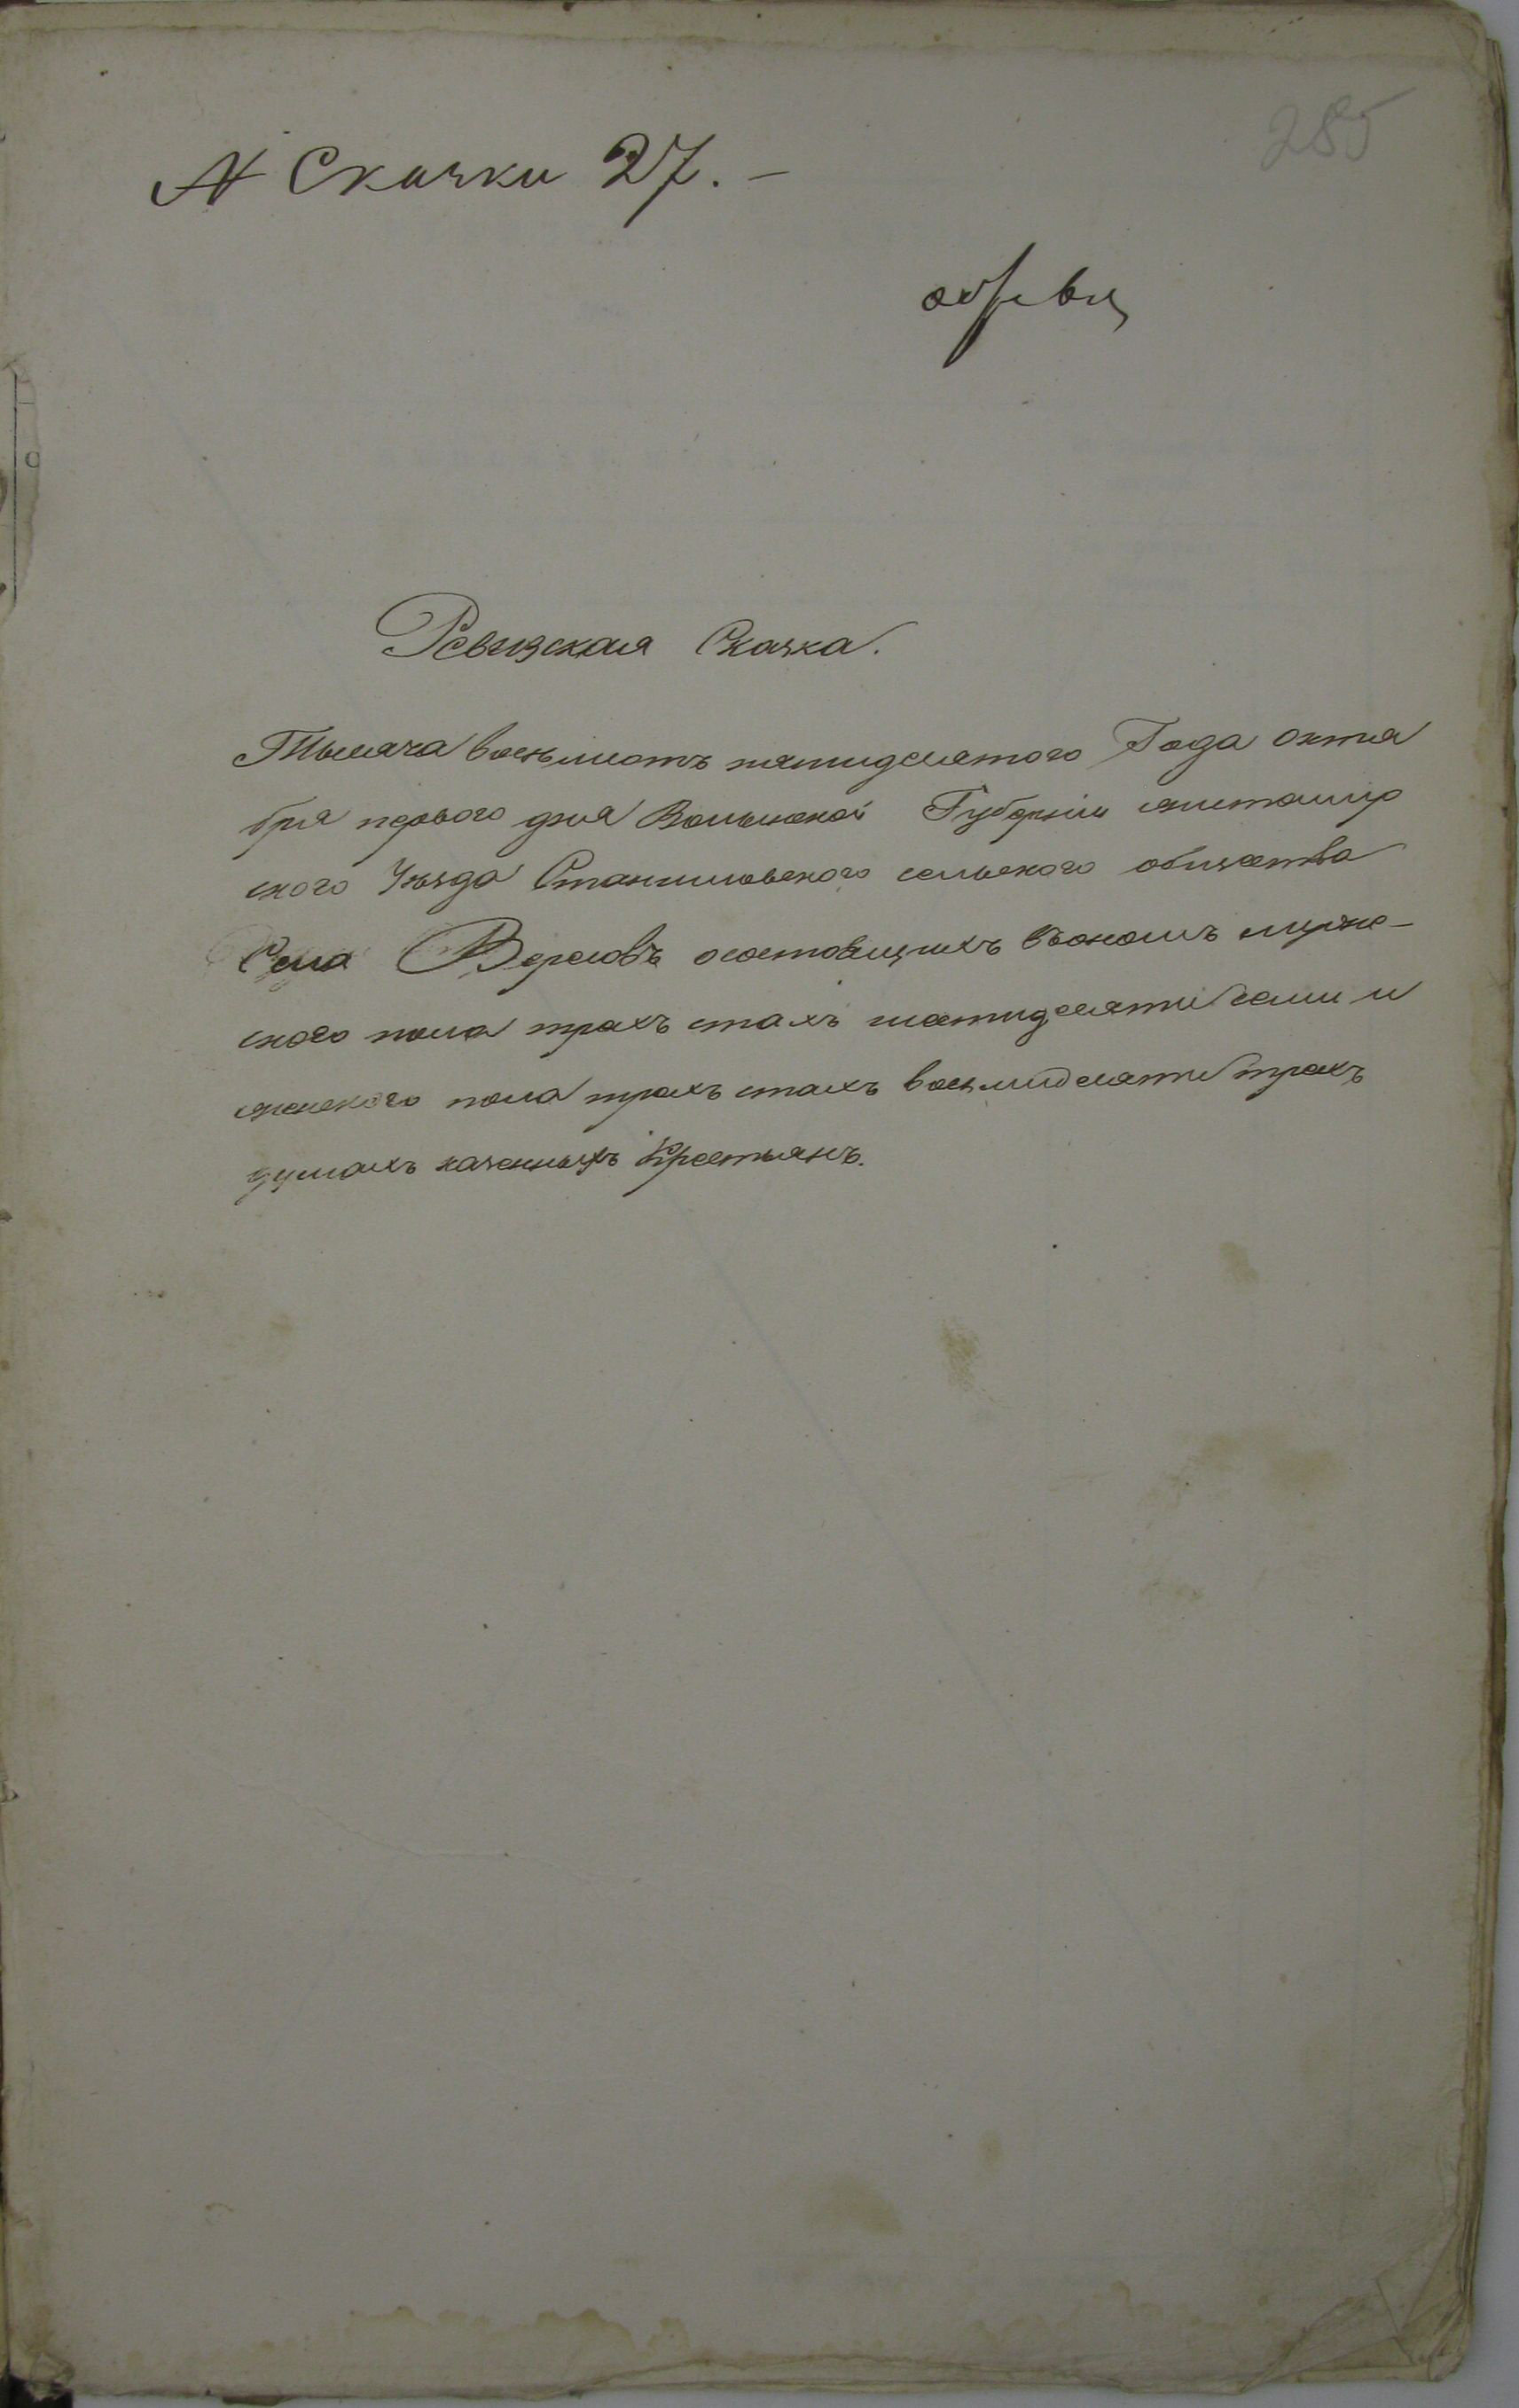 285
N Скаски 27. –
Ревизская Скаска.
Тысяча восемьсотъ пятидесятого Года Октя
бря первого дня Волынской Губерніи житомир
ского Уѣзда Станишовского сельского общества
Села осостоящихъ въономъ мужс-
ского пола трехъ стахъ шестидесяти семи и
женского пола трехъ стахъ восьмидесяти трехъ
душахъ казенныхъ Крестьянъ.